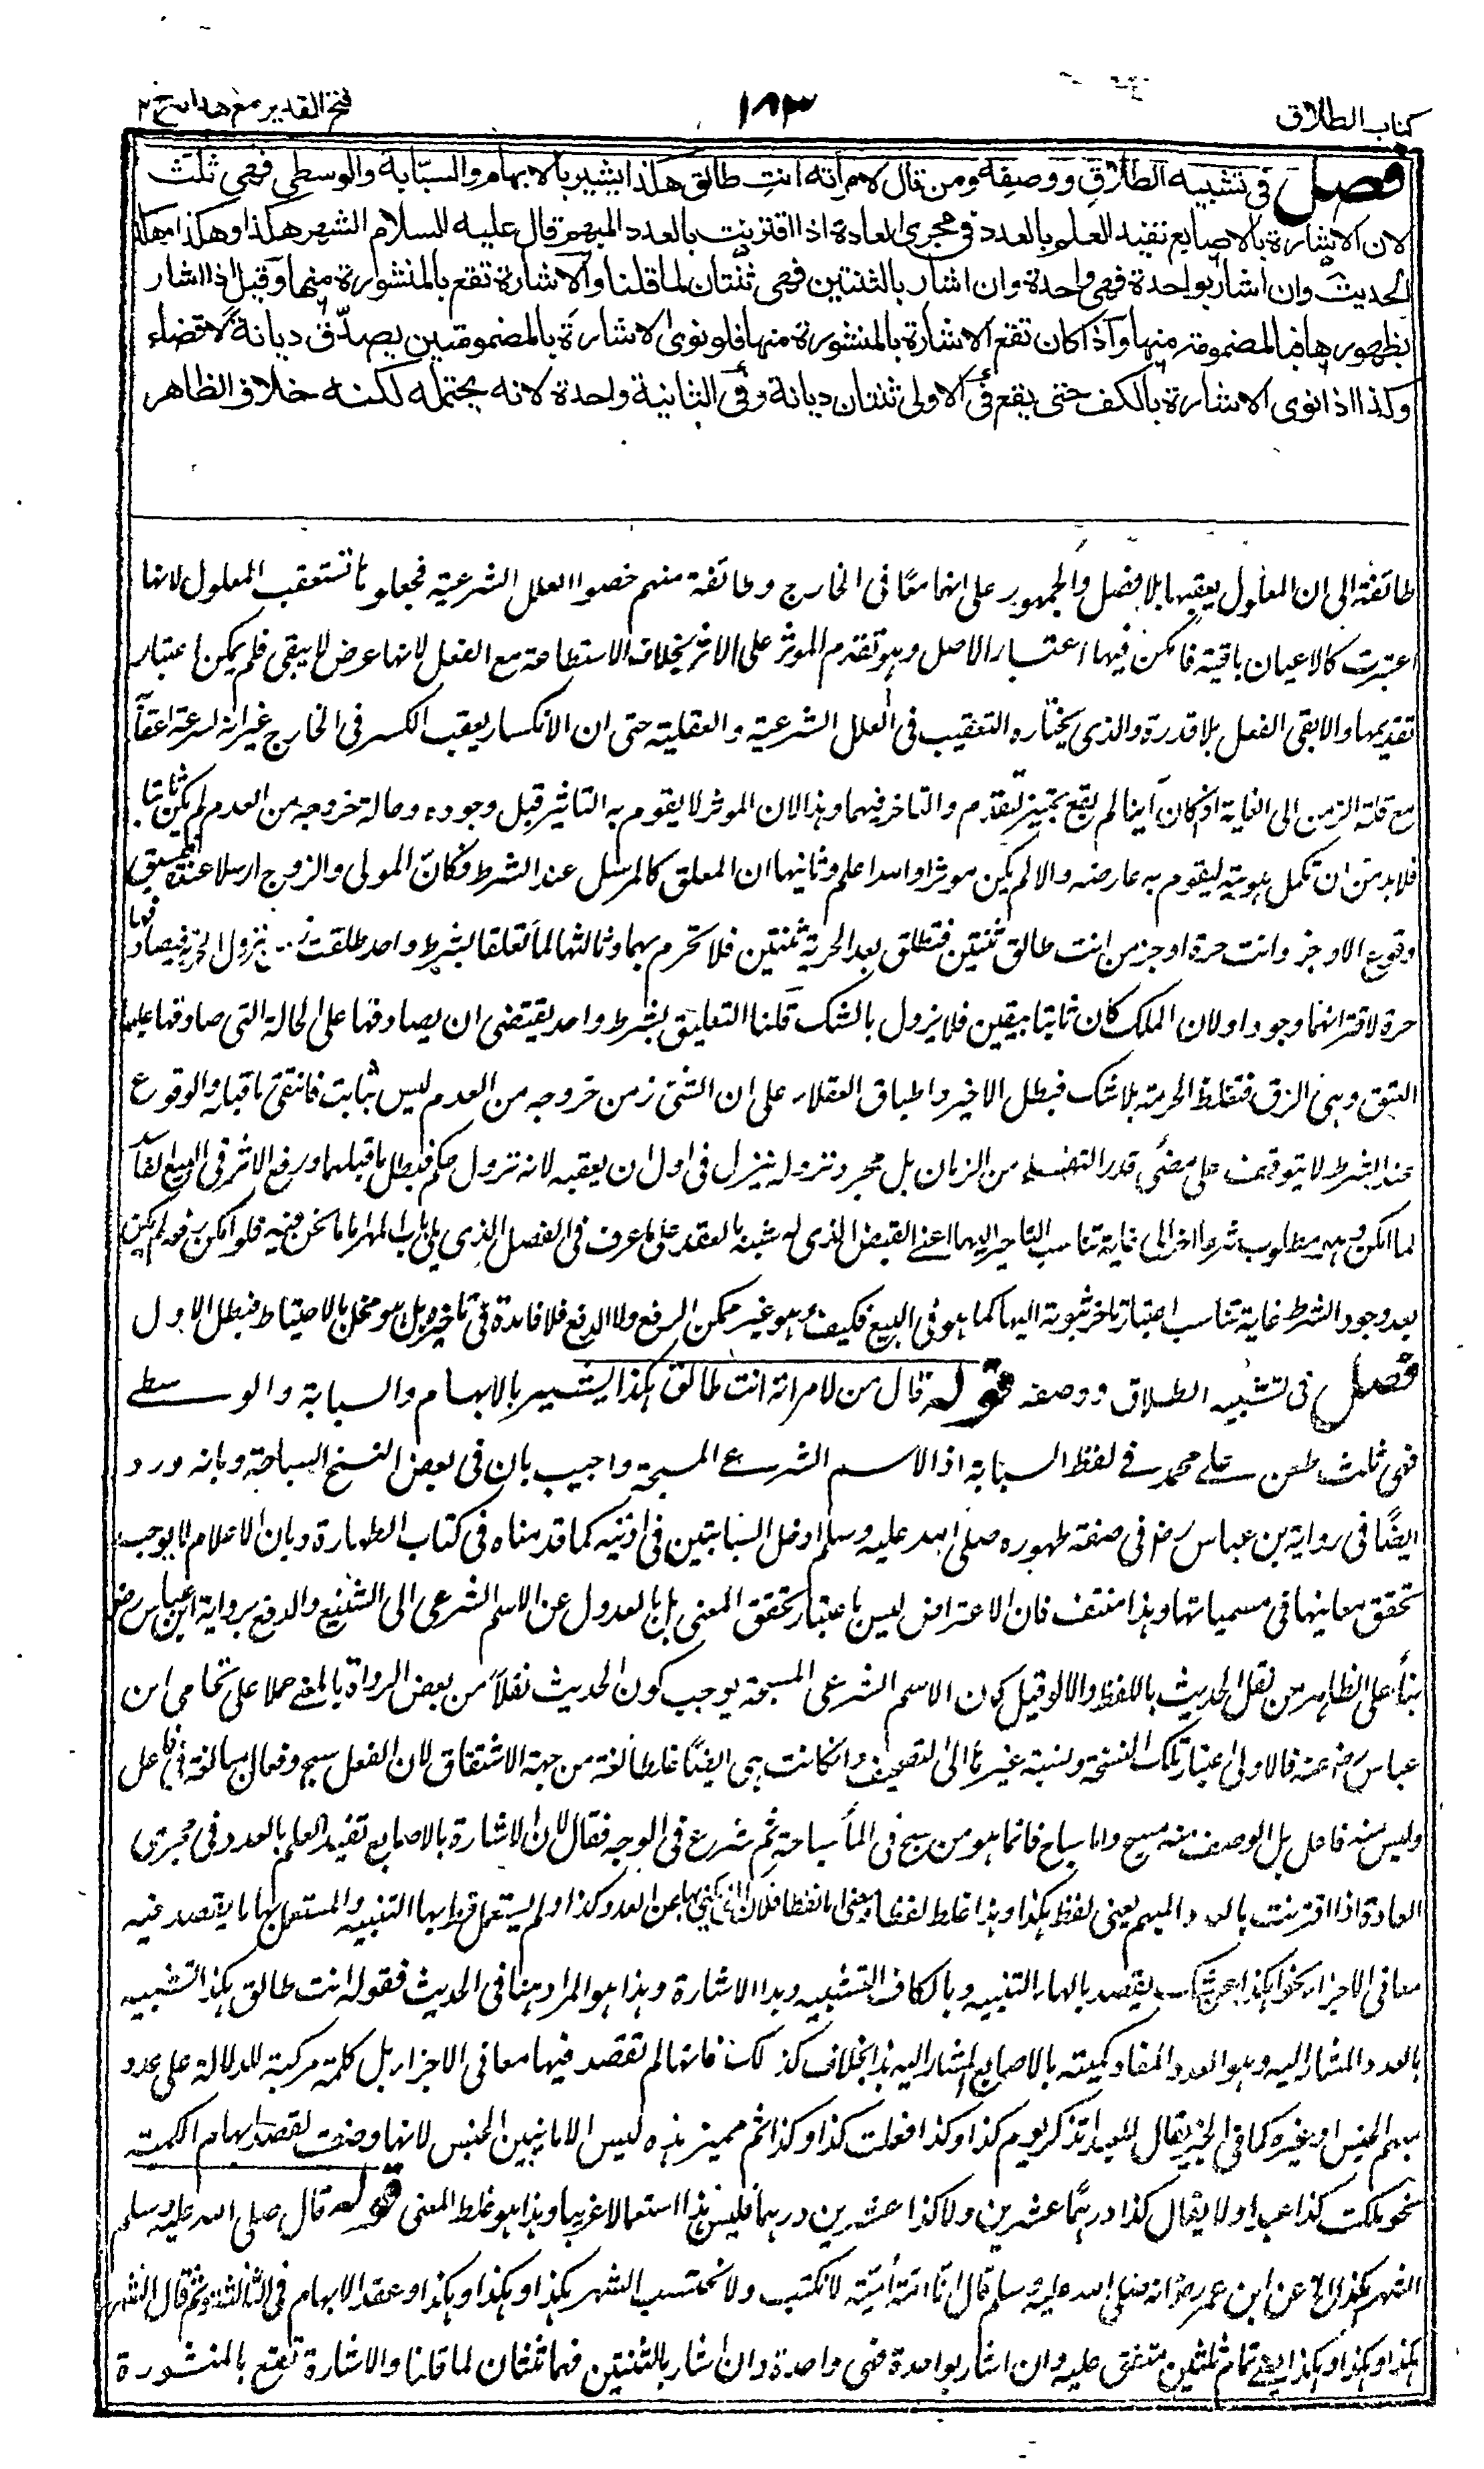 كتاب الطلاق
١٨٣
فتح القدير مع هدايه ج ٢
فصل في تشبيه الطلاق ووصفه ومن قال لامرأته انت طالق هكذا يشير بالابهام والسبابة والوسطى فهي ثلث
لان الاشارة بالاصابع تفيد العلم بالعدد في مجرى العادة اذا اقترنت بالعدد المبهم قال عليه السلام الشهر هكذا وهكذا وهكذا
الحديث وان اشار بواحدة فهي واحدة وان اشار بالثنتين فهي ثنتان لما قلنا والاشارة تقع بالمنشورة منها وقيل اذا اشار
بظهورها فبالمضمومة منها واذا كان تقع الاشارة بالمنشورة منها فلو نوى الاشارة بالمضمومتين يصدق ديانة لا قضاء
وكذا اذا نوى الاشارة بالكف حتى يقع في الاولى ثنتان ديانة وفي الثانية واحدة لانه يحتمله لكنه خلاف الظاهر
طائفة الى ان المعلول يعقبها بلا فصل والجمهور على انهما معا في الخارج وطائفة منهم خصوا العلل الشرعية فجعلوها تستعقب المعلول لانها
اعتبرت كالاعيان باقية فامكن فيها اعتبار الاصل وهو تقدم الموثر على الاثر بخلاف الاستطاعة مع الفعل لانها عرض لا يبقى فلم يمكن اعتبار
تقديمها والا بقى الفعل بلا قدرة والذى يختاره التعقيب في العلل الشرعية والعقلية حتى ان الانكسار يعقب الكسر في الخارج غير انه لسرعة اعقابه
مع قلة الزمن الى الغاية اذ كان آنيا لم يقع تمييز التقدم والتاخر فيهما وهذا لان الموثر لا يقوم به التاثير قبل وجوده وحالة خروجه من العدم لم يكن ثابتا
فلا بد من ان تكمل هويته ليقوم به عارضه والا لم يكن موثرا والله اعلم وثانيها ان المعلق كالمرسل عند الشرط فكان المولى والزوج ارسلا عنده فيسبق
وقوع الاوجز وانت حرة اوجز من انت طالق ثنتين فتطلق بعد الحرية ثنتين فلا تحرم بهما وثالثها لما تعلقا بشرط واحد طلقت زمن نزول الحرية فيصادفها
حرة لاقترانهما وجودا ولان الملك كان ثابتا بيقين فلا يزول بالشك قلنا التعليق بشرط واحد يقتضى ان يصادفها على الحالة التى صادفها عليها
العتق وهى الرق فتغلظ الحرمة بلا شك فبطل الاخير واطباق العقلاء على ان الشئ زمن خروجه من العدم ليس بثابت فانتفى ما قبله والوقوع
عند الشرط لا يتوقف على مضى قدر التلفظ من الزمان بل مجرد نزوله ينزل في اول ان يعقبه لانه نزول حكم فبطل ما قبلهما ورفع الاثر في البيع الفاسد
لما امكن وهو مطلوب شرعا اخر الى غاية تناسب التاخير اليها اعنى القبض الذى له شبه بالعقد على ما عرف في الفصل الذى يلى باب المهر اما ما نحن فيه فلو امكن رفعه لم يكن
بعد وجود الشرط غاية تناسب اعتبار تاخر ثبوته اليها كما هو في البيع فكيف وهو غير ممكن الرفع ولا الدفع فلا فائدة في تاخيره بل هو مخل بالاحتياط فبطل الاول
فصل في تشبيه الطلاق ووصفه قوله قال من لامراته انت طالق هكذا يشير بالابهام والسبابة والوسطى
فهى ثلث طعن على محمد في لفظ السبابة اذ الاسم الشرعى المسبحة واجيب بان في بعض النسخ السباحة وبانه ورد
ايضا في رواية بن عباس رض في صفة طهوره صلى الله عليه وسلم ادخل السبابتين في اذنيه كما قدمناه في كتاب الطهارة وبان الاعلام لا يوجب
تحقق معانيها في مسمياتها وهذا منتف فان الاعتراض ليس باعتبار تحقق المعنى بل بالعدول عن الاسم الشرعى الى الشنيع والدفع برواية ابن عباس رض
بناء على الظاهر من نقل الحديث باللفظ والا لو قيل كون الاسم الشرعى المسبحة يوجب كون الحديث نقلا من بعض الرواة بالمعنى حملا على تحامى ابن
عباس رض عنه فالاولى اعتبار تلك النسخة ونسبة غيرها الى التصحيف وان كانت هى ايضا غلطا لغة من جهة الاشتقاق لان الفعل سبح وفعال مبالغة في فاعل
وليس منه فاعل بل الوصف منه مسبح واما سباح فانما هو من سبح في الماء سباحة ثم شرع في الوجه فقال لان الاشارة بالاصابع تفيد العلم بالعدد في مجرى
العادة اذا اقترنت بالعدد المبهم يعنى لفظ هكذا وهذا غلط لفظا ومعنى اما لفظا فلان التى يكنى بها عن العدد كذا ولم يستعمل قط بها التنبيه والمستعمل بها ما يقصد فيه
معانى الاجزاء نحو اهكذا عرشك يقصد بالهاء التنبيه وبالكاف التشبيه وبذا الاشارة وهذا هو المراد هنا في الحديث فقوله انت طالق هكذا تشبيه
بالعدد المشار اليه وهو العدد المفاد كميته بالاصابع المشار اليه بذا بخلاف كذلك فانها لم تقصد فيها معانى الاجزاء بل كلمة مركبة للدلالة على عدد
مبهم الجنس او غيره كما في الخبر يقال للعبد اتذكر يوم كذا وكذا فعلت كذا وكذا ثم مميز هذه ليس الا ما يبين الجنس لانها وضعت لقصد ابهام الكمية
نحو ملكت كذا عبدا ولا يقال كذا درهما عشرين ولا كذا عشرين درهما فليس هذا استعمالا عربيا وهذا هو غلط المعنى قوله قال صلى الله عليه وسلم
الشهر هكذا الخ عن ابن عمر رض انه صلى الله عليه وسلم قال انا امة امية لا نكتب ولا نحتسب الشهر هكذا وهكذا وهكذا وعقد الابهام في الثالثة ثم قال الشهر
هكذا وهكذا وهكذا يعنى تمام ثلثين متفق عليه وان اشار بواحدة فهى واحدة وان اشار بالثنتين فهما ثنتان لما قلنا والاشارة تقع بالمنشورة